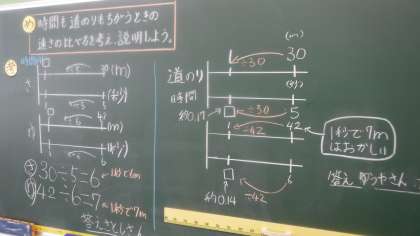 め 時間も道のりもちがうときの
速さの比べ方を考え、説明しよう。
時間
(m)
(秒)
(m)
(秒)
30÷5=6 1秒で6m
42÷6=7 1秒で7m
答え さとしさん
(m)
1 30
÷30
道のり
(秒)
時間
約0.17 □ ÷30 5
1 ÷42 42
□ 6
約0.14 ÷42
1秒で7m
はおかしい
答え ゆうやさん